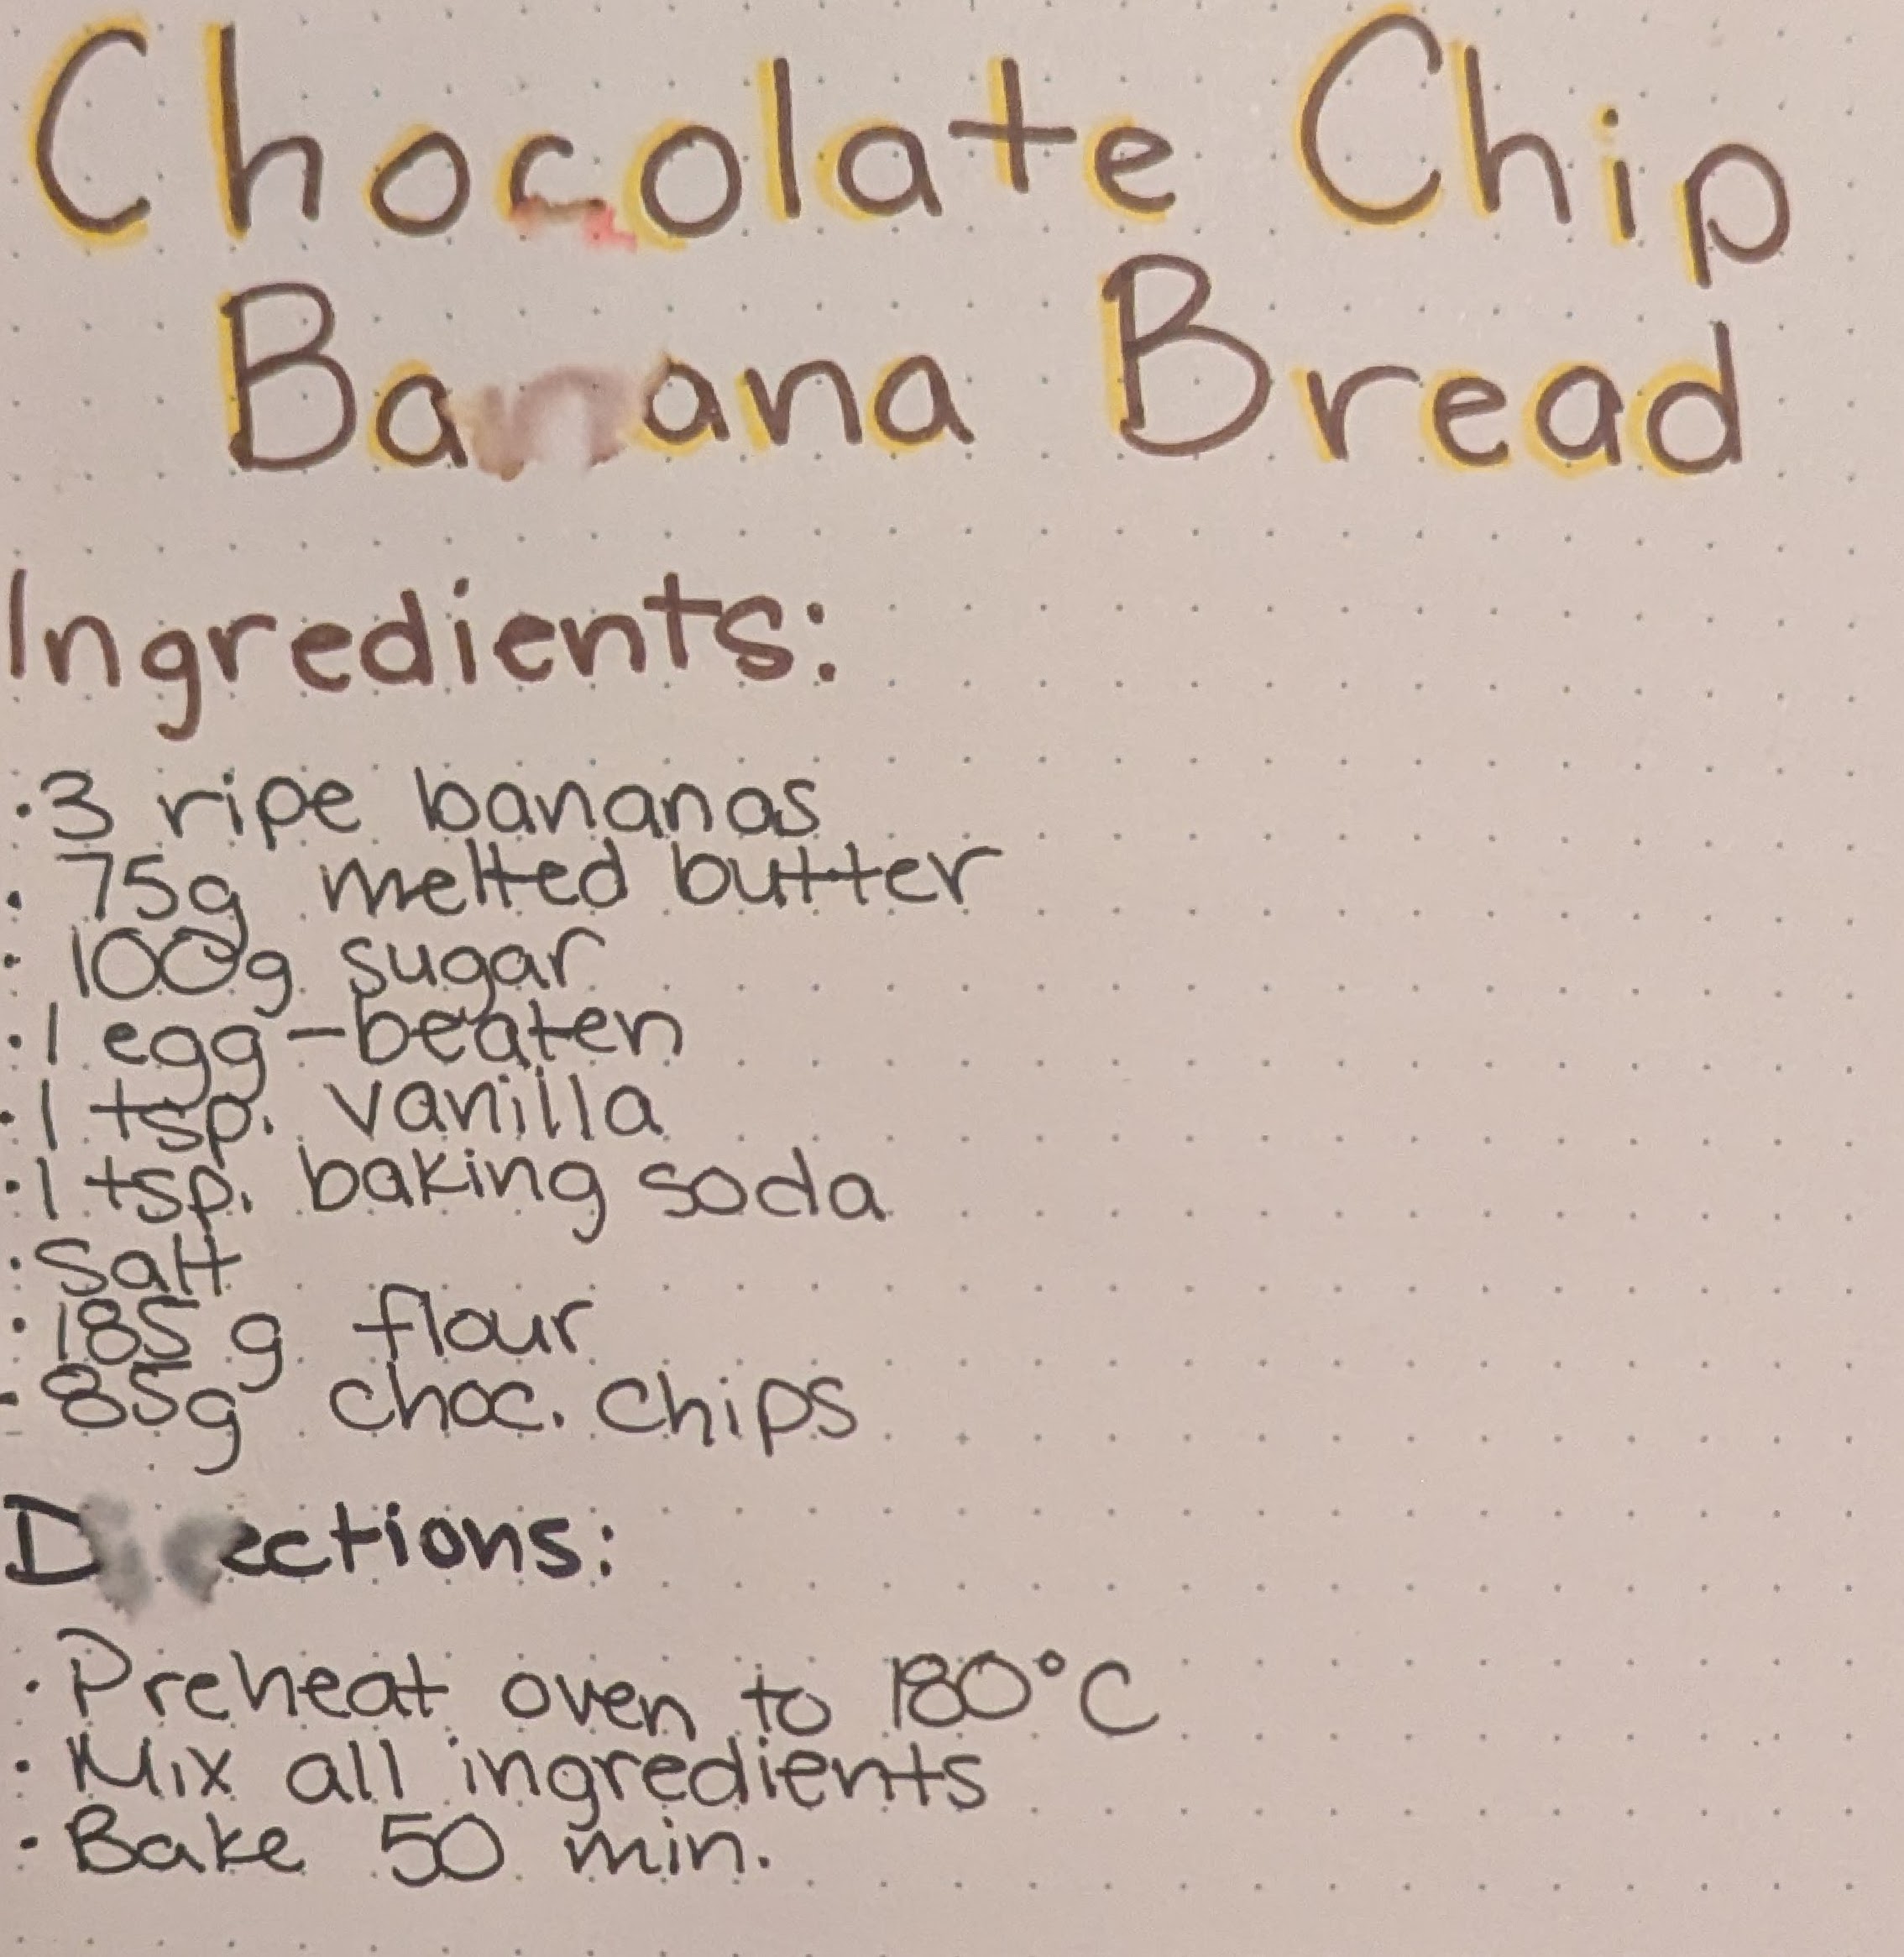 Chocolate Chip
Banana Bread
Ingredients:
·3 ripe bananas
· 75g melted butter
· 100g sugar
·1 egg-beaten
·1 tsp. vanilla
·1 tsp. baking soda
·Salt
·185 g flour
·85g choc. chips
Directions:
·Preheat oven to 180°C
·Mix all ingredients
·Bake 50 min.